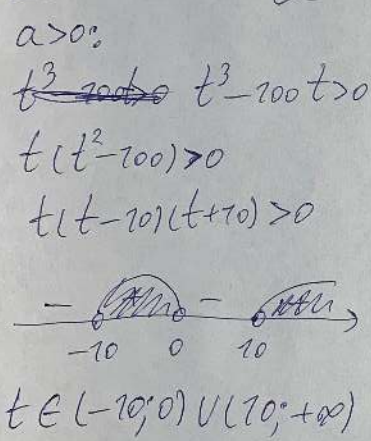 a>0:
t³-100t>0 t³-100t>0
t(t²-100)>0
t(t-10)(t+10)>0
- + - +
-10 0 10
t∈(-10;0)∪(10;+∞)